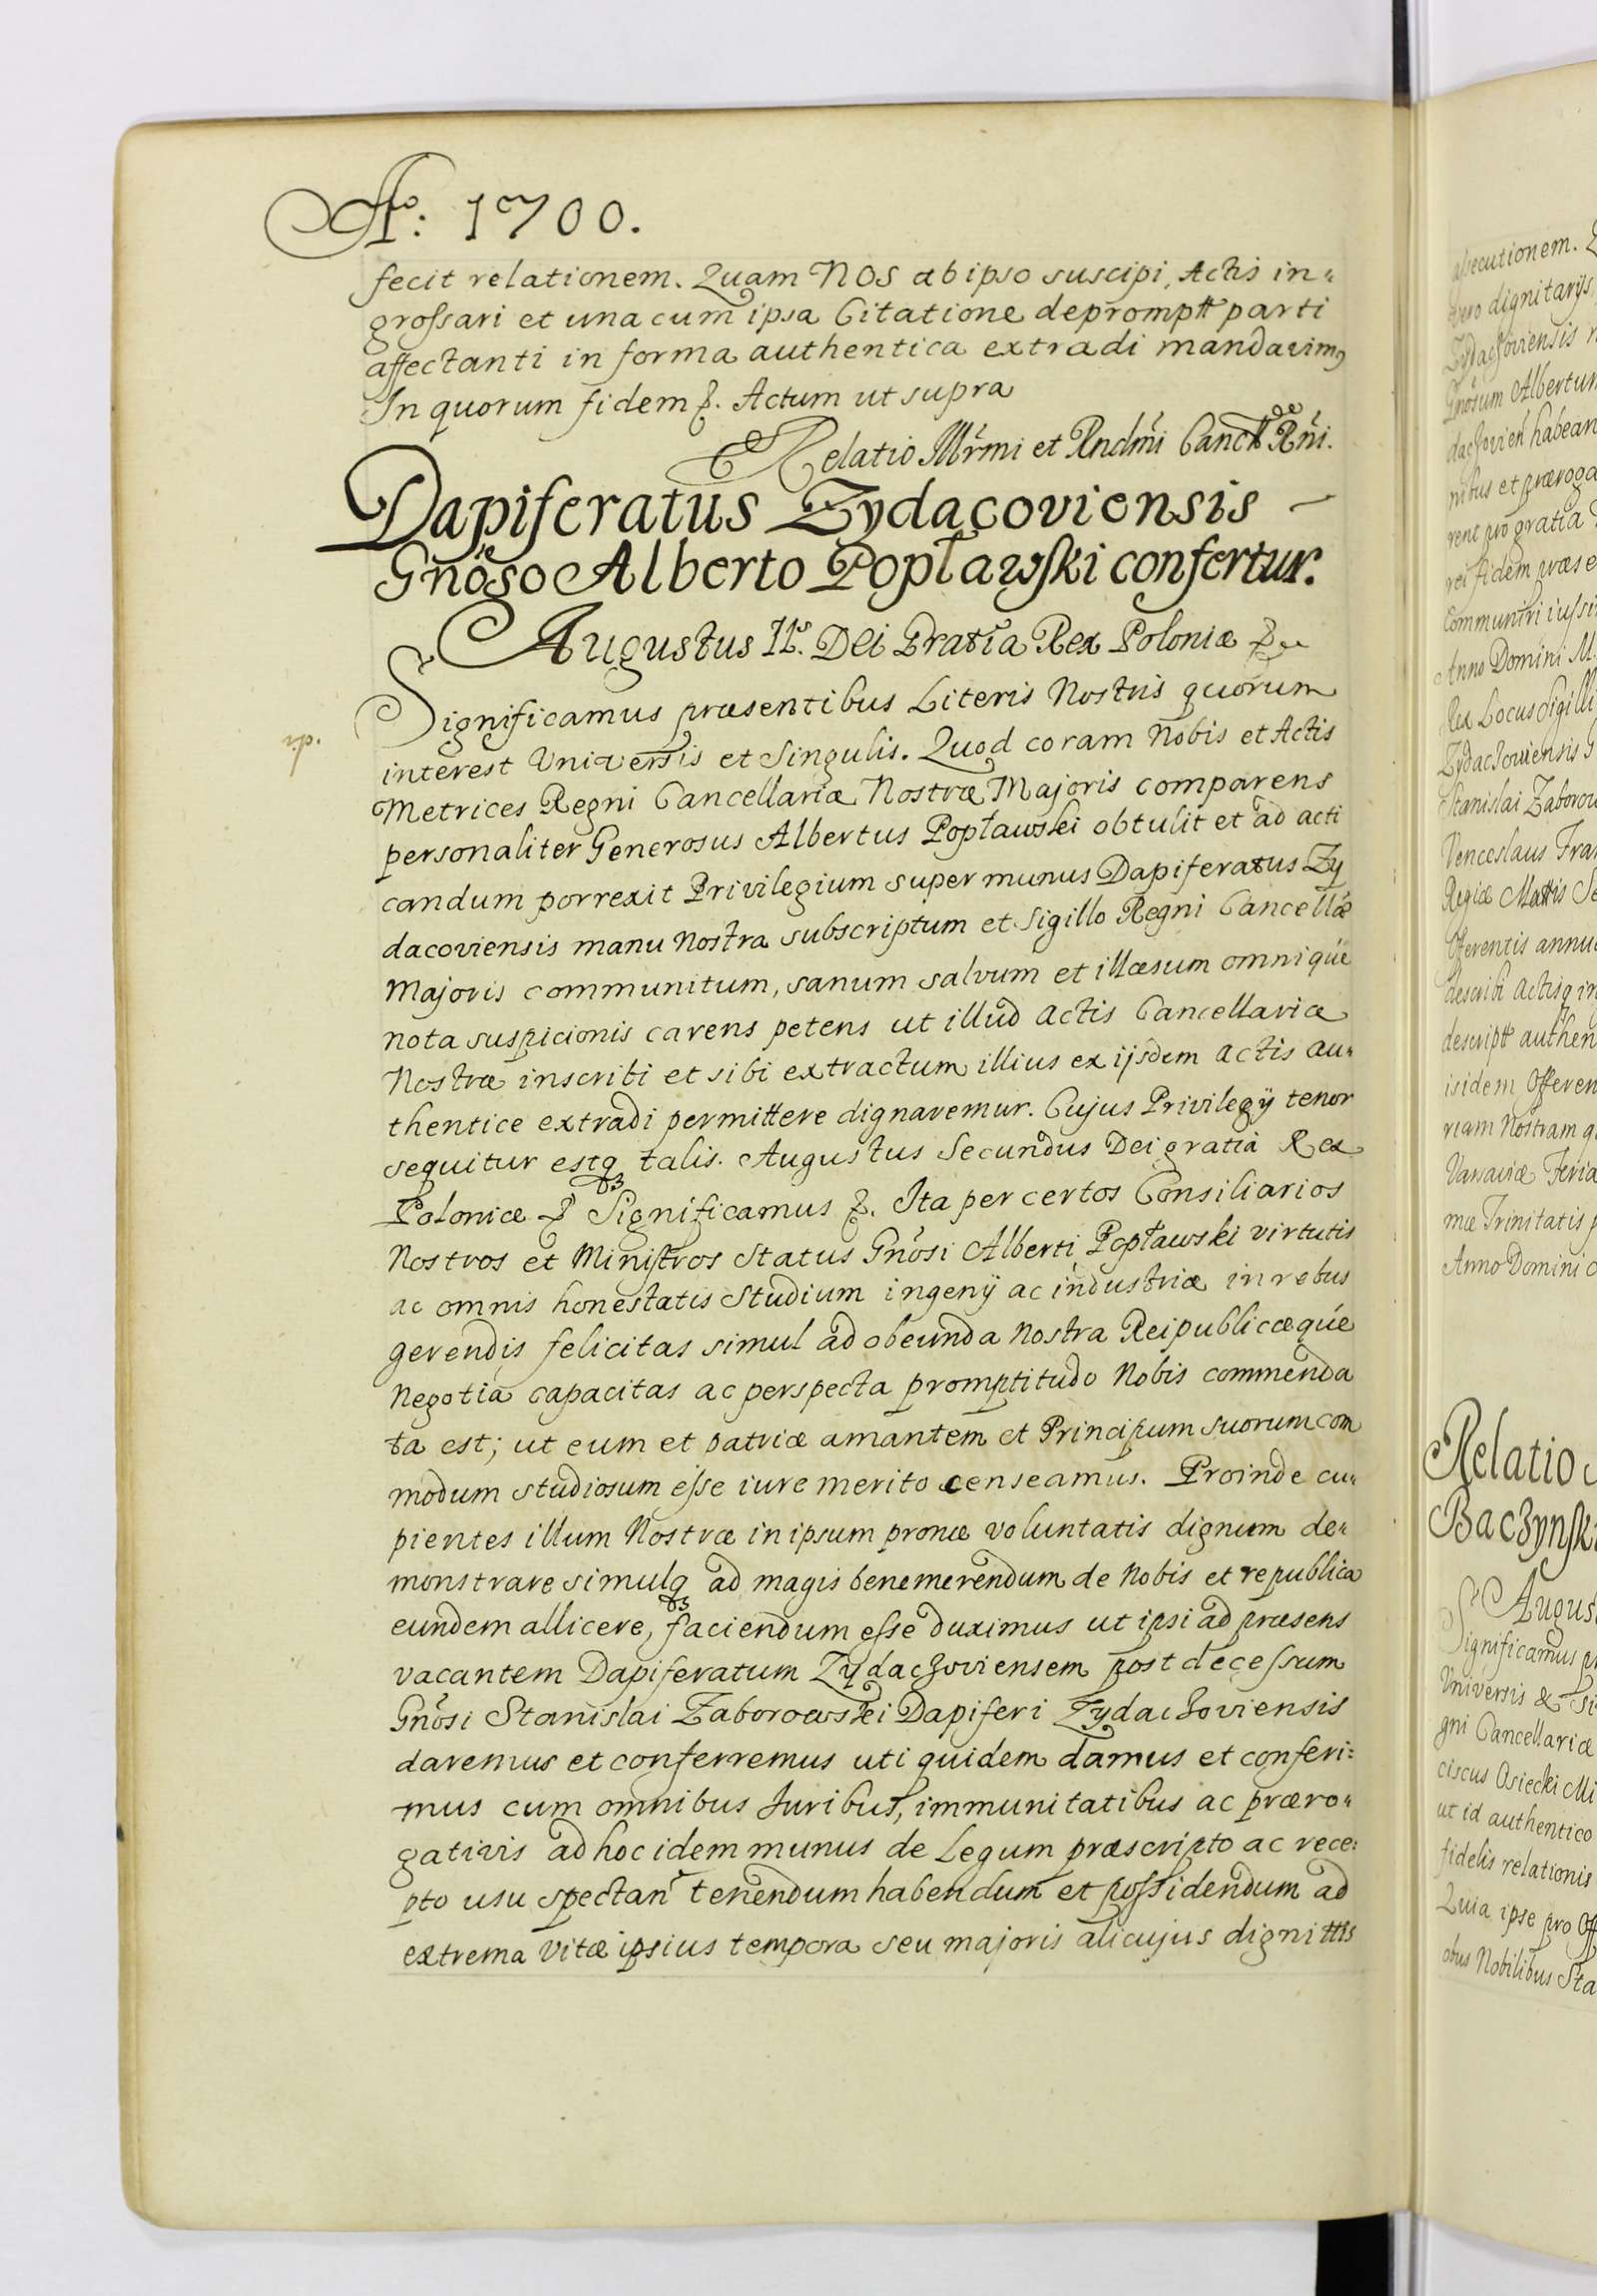 Aº: 1700.
fecit relationem. Quam NOS ab ipso suscipi, Actis in„
grossari et una cum ipsa Citatione deprompt̃t parti
affectanti in forma authentica extradi mandavimꝰ
In quorum fidem &. Actum ut supra
Relatio Illr̃mi et Rndm̃i Canc̃ll Rñi.
Dapiferatus Zydacoviensis —
Gñoso Alberto Popławski confertur.
Augustus IIs. Dei Gratia Rex Poloniæ &c
Significamus præsentibus Literis Nostris quorum
vp.
interest Universis et Singulis. Quod coram Nobis et Actis
Metrices Regni Cancellariæ Nostræ Majoris comparens
personaliter Generosus Albertus Popławski obtulit et ad acti
candum porrexit Privilegium super munus Dapiferatus Zy
dacoviensis manu Nostra subscriptum et Sigillo Regni Cancellæ
Majoris communitum, sanum salvum et illæsum omnique
nota suspicionis carens petens ut illud Actis Cancellariæ
Nostræ inscribi et sibi extractum illius ex ijsdem Actis au„
thentice extradi permittere dignaremur. Cujus Privilegÿ tenor
sequitur estqȝ talis. Augustus Secundus Dei gratia Rex
Poloniæ & Significamus &. Ita per certos Consiliarios
Nostros et Ministros Status Gñosi Alberti Popławski virtutis
ac omnis honestatis Studium ingenÿ ac industriæ in rebus
gerendis felicitas simul ad obeunda Nostra Reipublicæque
Negotia capacitas ac perspecta promptitudo Nobis commenda
ta est; ut eum et patriæ amantem et Principum suorum com
modum studiosum esse iure merito censeamus. Proinde cu„
pientes illum Nostræ in ipsum pronæ voluntatis dignum de„
monstrare simulqȝ ad magis benemerendum de Nobis et republica
eundem allicere, faciendum esse duximus ut ipsi ad præsens
vacantem Dapiferatum Zydaczoviensem post decessum
Gñosi Stanislai Zaborowski Dapiferi Zydaczoviensis
daremus et conferremus uti quidem damus et conferi=
mus cum omnibus Juribus, immunitatibus ac præro„
gativis ad hoc idem munus de Legum præscripto ac rece:
pto usu spectañ tenendum habendum et possidendum ad
extrema vitæ ipsius tempora seu majoris alicujus dignittis
assecutionem.
vero dignitarÿs
Zydaczoviensis
Gñosum Albertum
daczovień habean
nibus et præroga
rent pro gratia
rei fidem præse
Communiri iussi
Anno Domini M
Rex Locus Sigilli
Zydaczoviensis G
Stanislai Zaborow
Venceslaus Fra
Regiæ Mattis Se
Offerentis annu
describi Actisq in
descriptt authen
isidem Offeren
riam Nostram
Varsaviæ Feria
mæ Trinitatis p
Anno Domini
Relatio
Baczynski
Augus
Significamus pr
Universis & Si
gni Cancellariæ
ciscus Osiecki Mi
ut id authentico
fidelis relationis
Quia ipse pro Off
obus Nobilibus Sta